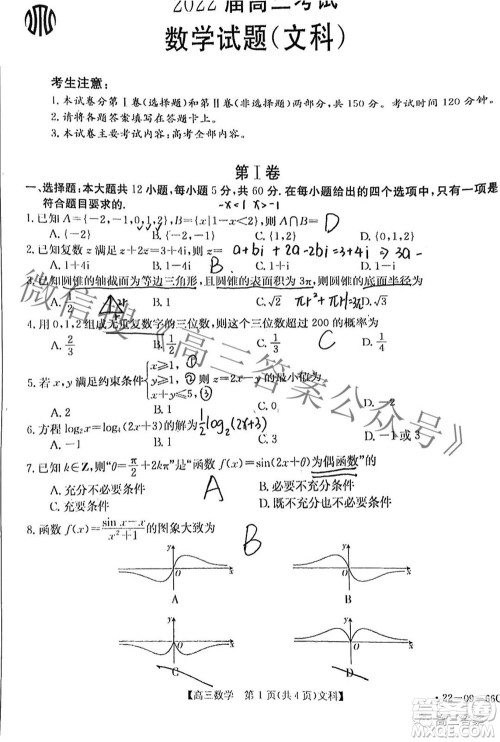 2022届高三考试
数学试题(文科)
考生注意:
1.本试卷分第Ⅰ卷(选择题)和第Ⅱ卷(非选择题)两部分,共150分。考试时间120分钟。
2.请将各题答案填写在答题卡上。
3.本试卷主要考试内容:高考全部内容。
第Ⅰ卷
一、选择题:本大题共12小题,每小题5分,共60分.在每小题给出的四个选项中,只有一项是
符合题目要求的.
-x<1 x>-1
1.已知A={-2,-1,0,1,2},B={x|1-x<2},则A∩B= D
A.{-2,-1} B.{-2} C.{1,2} D.{0,1,2}
2.已知复数z满足z+2z̄=3+4i,则z= a+bi+2a-2bi=3+4i ⇒3a-
A.1+4i B.1 C.1-4i B
3.已知圆锥的轴截面为等边三角形,且圆锥的表面积为3π,则底面半径为
A. B.1 C.√2 D.√3
4.用0,1,2组成无重复数字的三位数,则这个三位数超过200的概率为
A.2/3 B.1/2 C.1/3 D.1/4 C
5.若x,y满足约束条件{x≥1, ① y≤1, ② x+y≤5, ③ 则z=2x-y的最小值为
A.-2 B.-1 C.1 D.2
6.方程log₂x=log₄(2x+3)的解为 ½log₂(2x+3)
A.-1 B.1 C.3 D.-1或3
7.已知k∈Z,则“θ=π/2+2kπ”是“函数f(x)=sin(2x+θ)为偶函数”的
A.充分不必要条件 B.必要不充分条件
C.充要条件 D.既不充分也不必要条件
A
8.函数f(x)=(sin x-x)/(x²+1)的图象大致为 B
y O x y O x
A B
y O x y O x
C D
高三数学 第1页(共4页)文科
·22-09-
微信搜《高三答案公众号》
高三答案